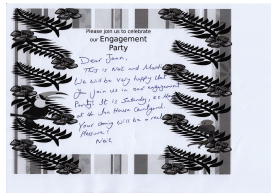 Please join us to celebrate
our Engagement
Party
Dear Joan,
This is Neil and
We will be very happy that
you join us in our engagement
Party! It is Saturday, at
at the Inn House Courtyard.
Your coming will be a real
Pleasure!
Neil